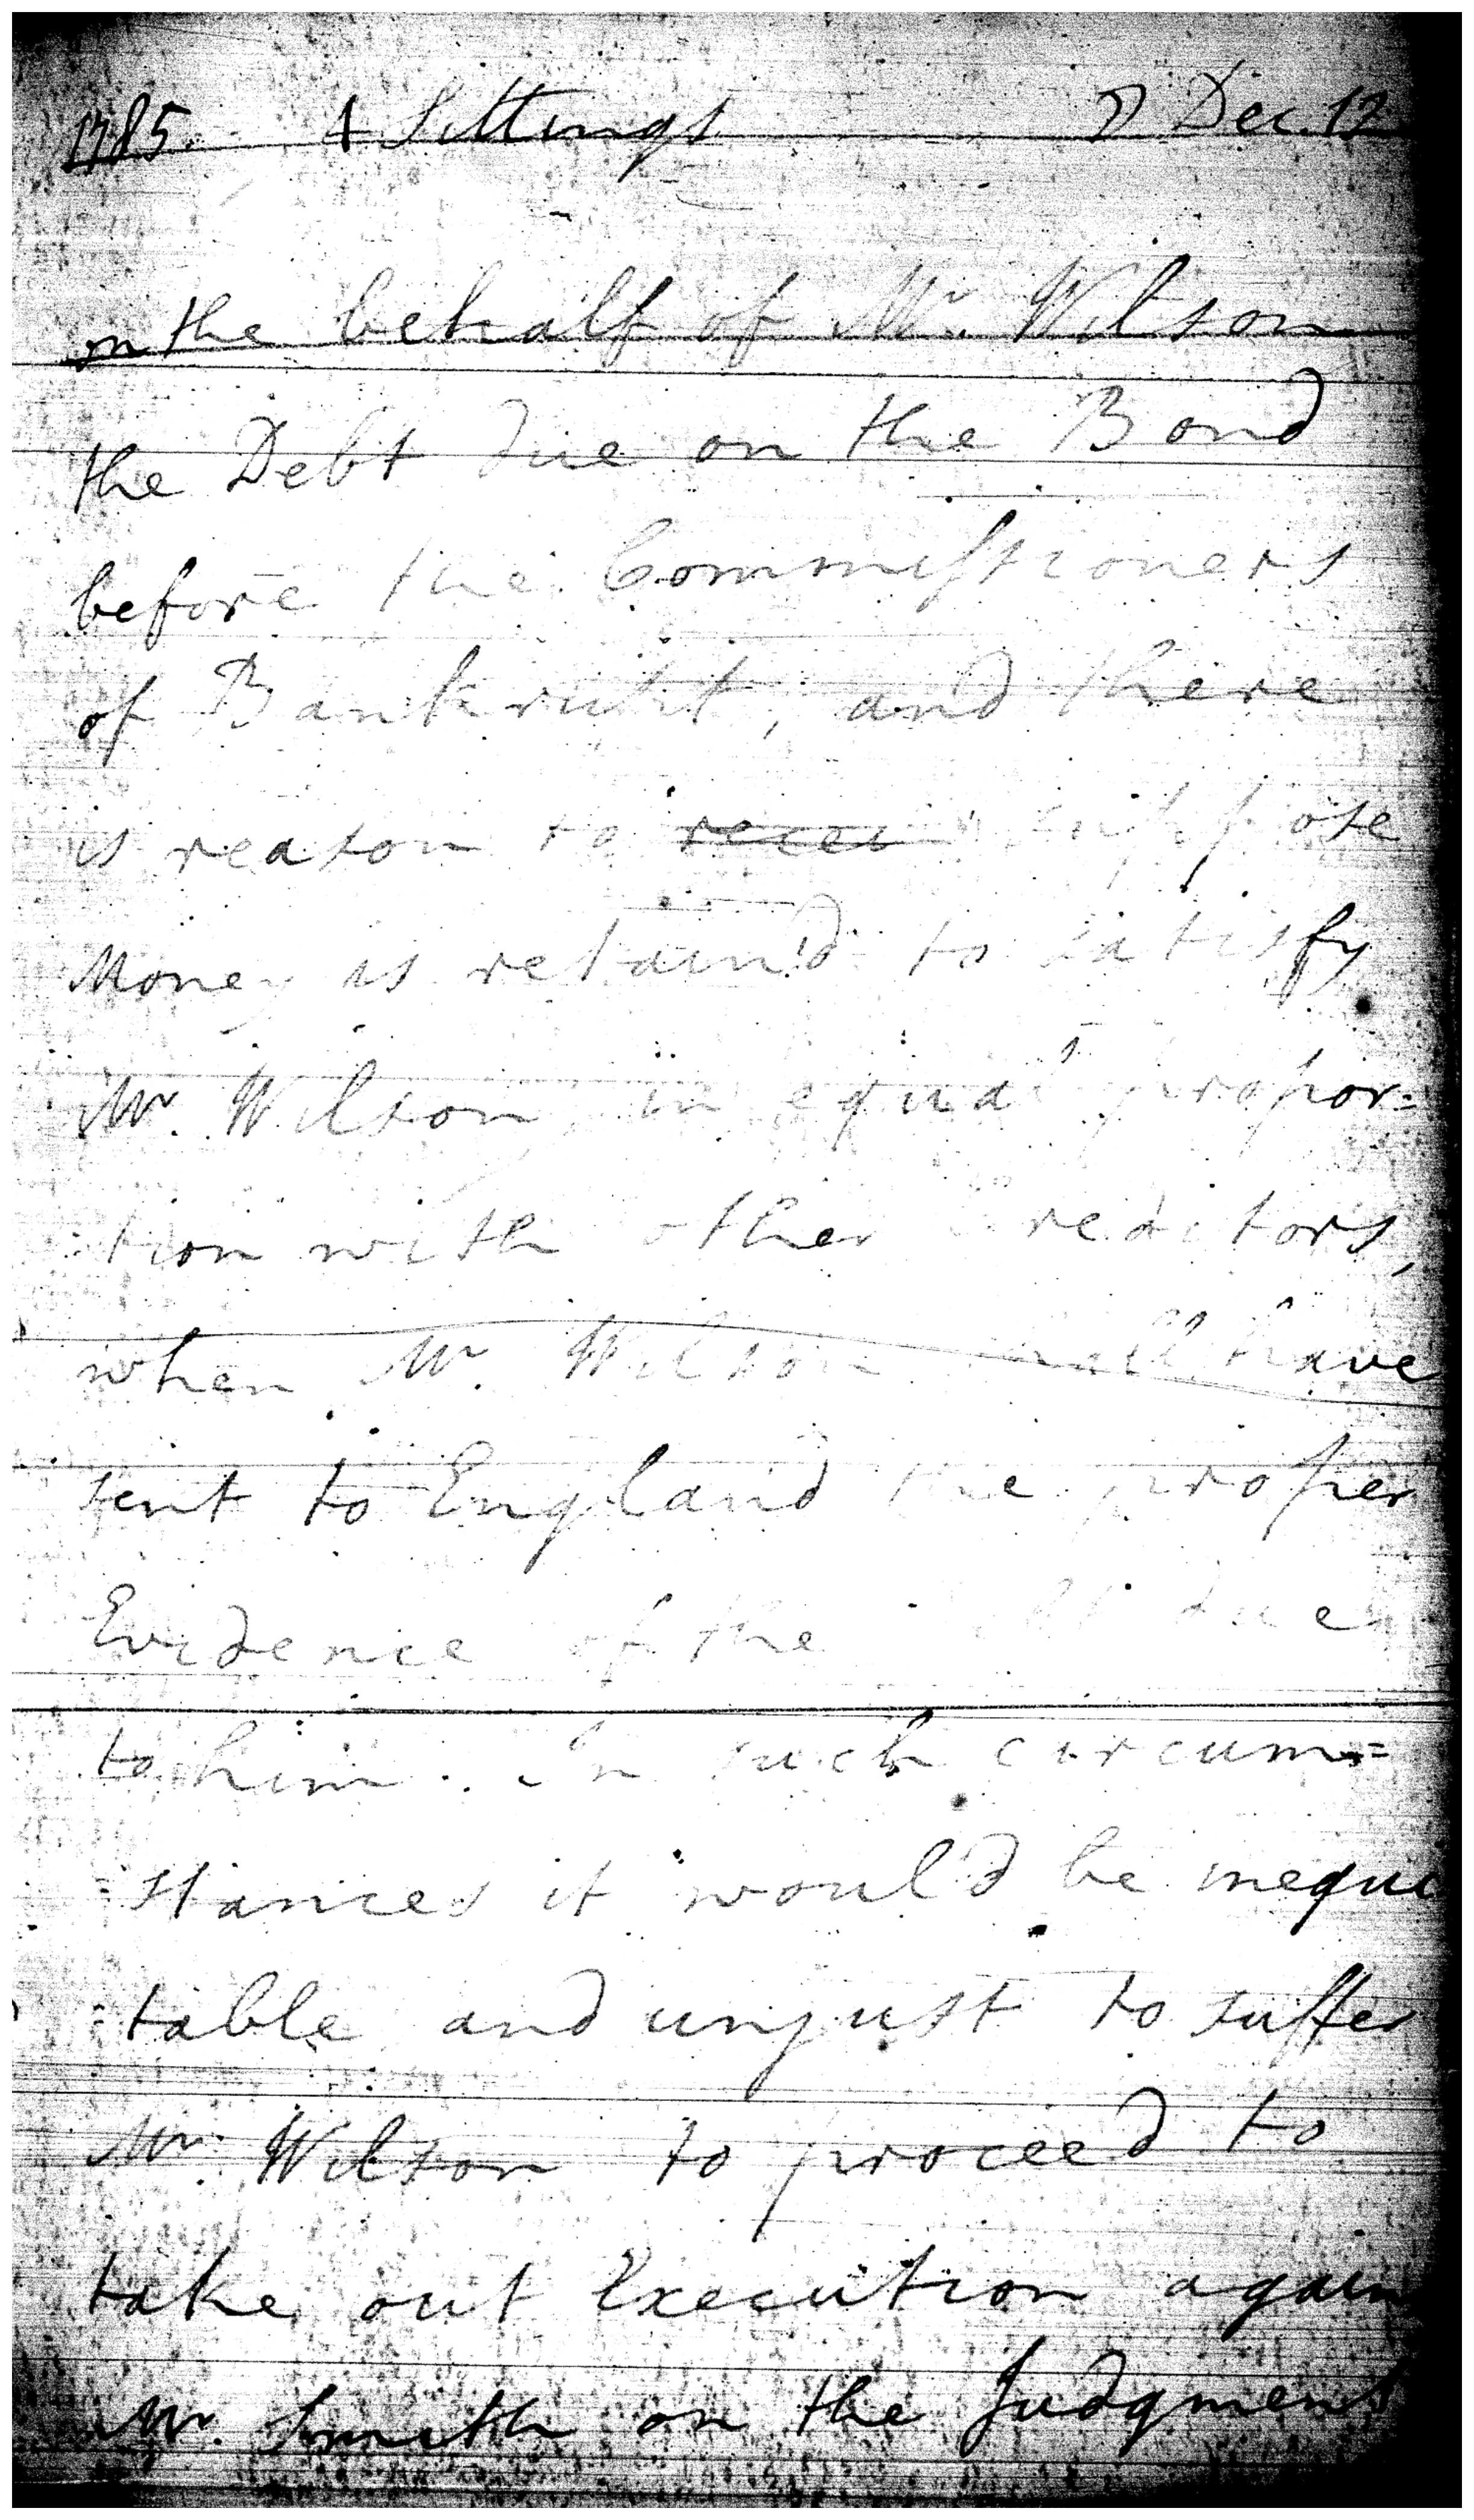 1785. 4 Sittings Dec. 12
on the behalf of Mr. Wilson
the Debt due on the Bond
before the Commissioners
of Bankrupt, and there
is reason to suppose
Money is retain'd to satisfy
Mr. Wilson in equal propor=
tion with other Creditors,
when Mr. Wilson shall have
sent to England the proper
Evidence of the due
to him. In such circum=
=stances it would be inequi
=table and unjust to suffer
Mr. Wilson to proceed to
take out Execution again
Mr. Smith on the Judgment